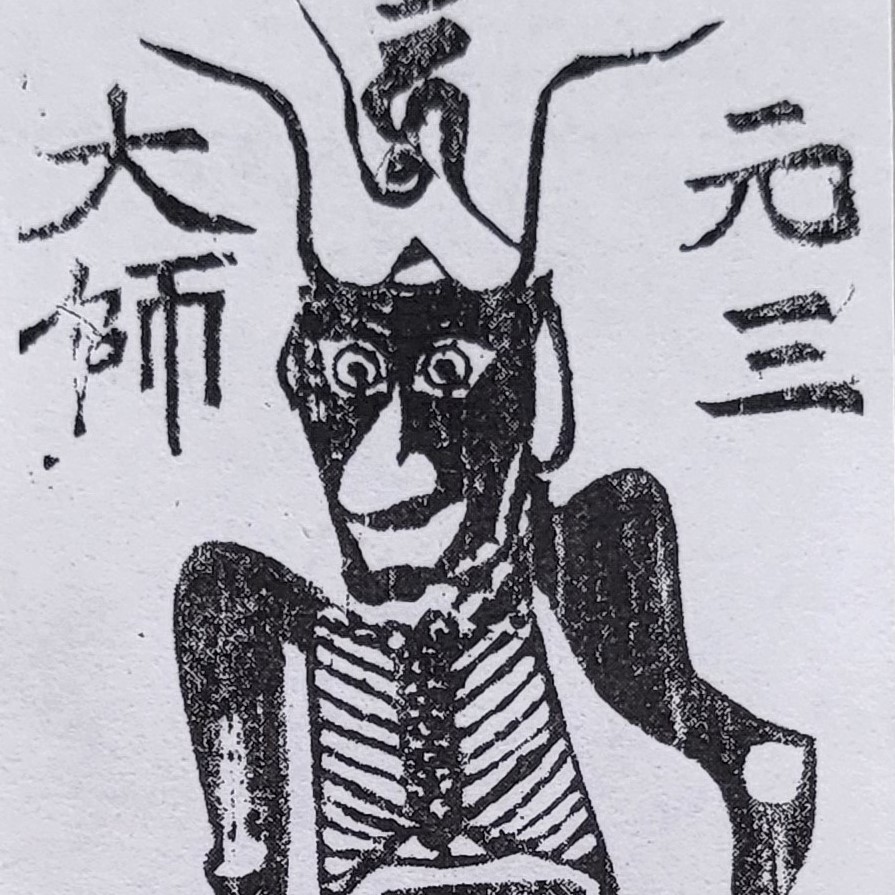 元三
大師